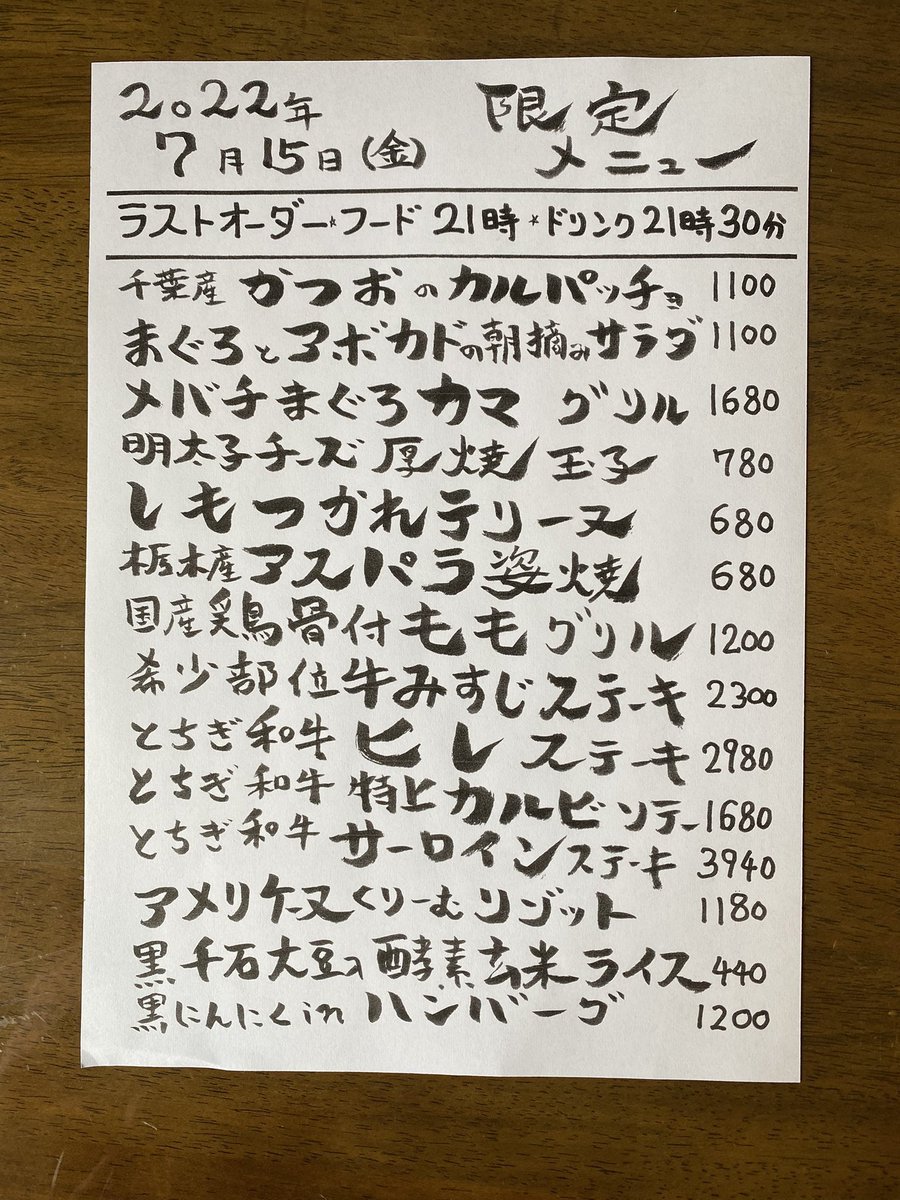 2022年
7月15日(金)
限定
メニュー
ラストオーダー*フード 21時*ドリンク21時30分
千葉産 かつおのカルパッチョ 1100
まぐろとアボカドの朝摘みサラダ 1100
メバチまぐろカマ グリル 1680
明太子チーズ厚焼玉子 780
しもつかれテリーヌ 680
栃木産アスパラ姿焼 680
国産鶏骨付ももグリル 1200
希少部位牛みすじステーキ 2300
とちぎ和牛 ヒレステーキ 2980
とちぎ和牛 特上カルビソテー 1680
とちぎ和牛 サーロインステーキ 3940
アメリケーヌくりーむリゾット 1180
黒千石大豆入酵素玄米ライス 440
黒にんにくin ハンバーグ 1200